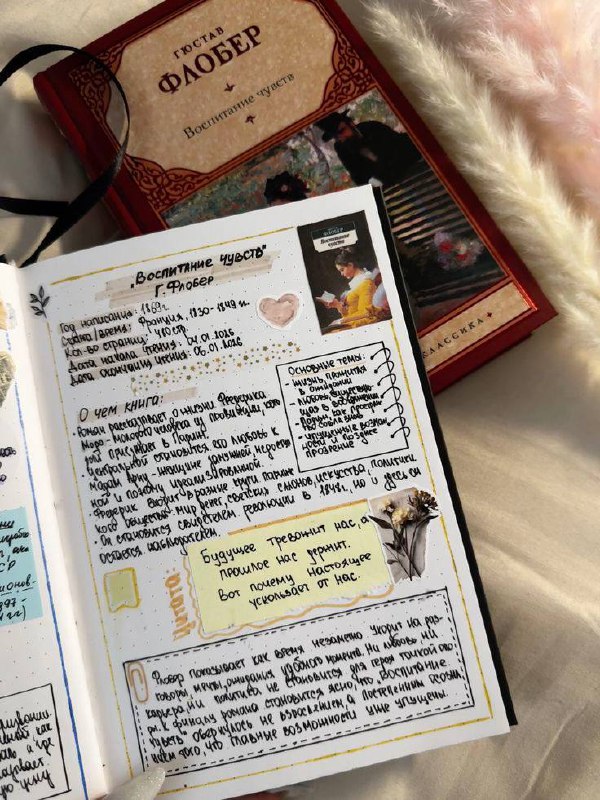 ГЮСТАВ
ФЛОБЕР
Воспитание чувств
КЛАССИКА
ФЛОБЕР
Воспитание чувств
"Воспитание чувств"
Г. Флобер
Год написания: 1869г.
Страна/время: Франция, 1830-1849 гг.
Кол-во страниц: 440 стр.
Дата начала чтения: 04.01.2026
Дата окончания чтения: 06.01.2026
Основные темы:
- жизнь прожитая
в ожидании
- любовь, существую-
щая в воображении
- Париж, как простран-
ство соблазнов
- упущенные возмож-
ности и позднее
прозрение
О чем книга:
• Роман рассказывает о жизни Фредерика
Моро - молодого человека из провинции, кото-
рый приезжает в Париж.
• Центральной становится его любовь к
мадам Арну - женщине замужней, недоступ-
ной и потому идеализированной.
• Фредерик входит в разные круги париж-
ского общества: мир денег, светских салонов, искусства, политики
• Он становится свидетелем революции в 1848г., но и здесь он
остается наблюдателем.
Цитата:
Будущее тревожит нас, а
прошлое нас держит.
Вот почему настоящее
ускользает от нас.
Флобер показывает как время незаметно уходит на раз-
говоры, мечты, ожидания удобного момента. Ни любовь, ни
карьера, ни политика не становится для героя точкой опо-
ры. К финалу романа становится ясно, что воспитание
чувств обернулось не взрослением, а постепенным осозна-
нием того, что главные возможности уже упущены.